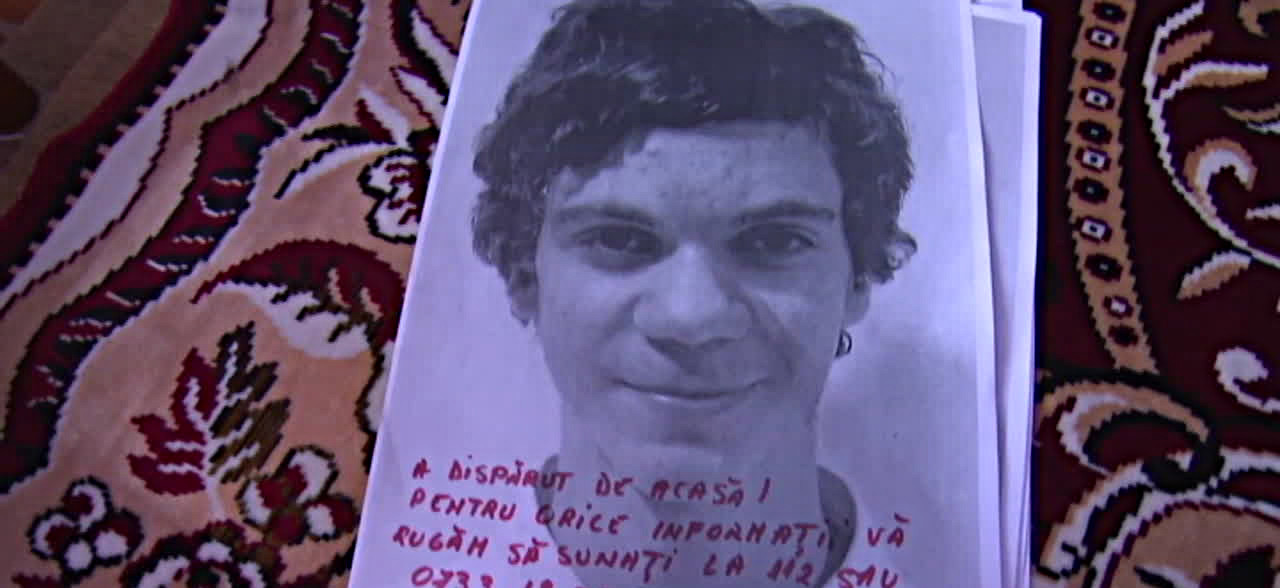 A DISPĂRUT DE ACASĂ!
PENTRU ORICE INFORMAȚI, VĂ
RUGĂM SĂ SUNAȚI LA 112 SAU